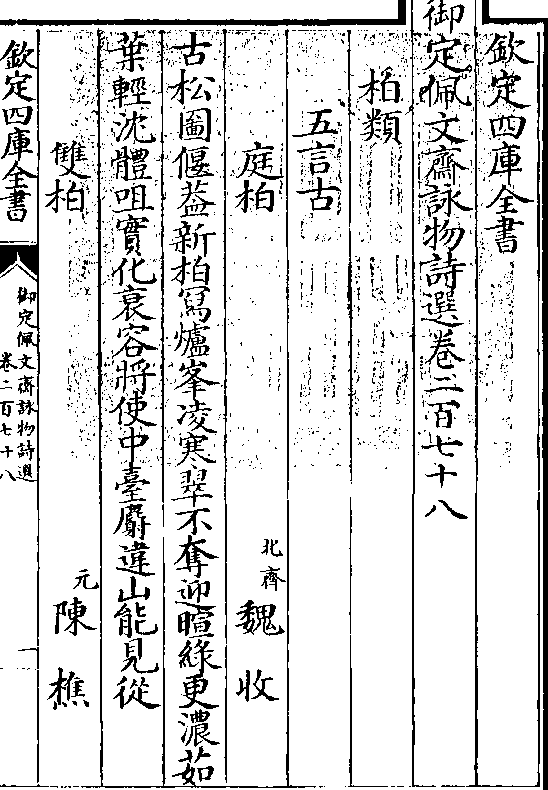 欽定四庫全書
御定佩文齋詠物詩選卷二百七十八
柏類
五言古
庭柏　北齊　魏　收
古松圖偃葢新柏寫爐峯凌寒翠不奪迎暄綠更濃茹
葉輕沈體咀實化衰容將使中臺麝違山能見從
雙柏　元　陳　樵
欽定四庫全書
御定佩文齋詠物詩選
卷二百七十八
一